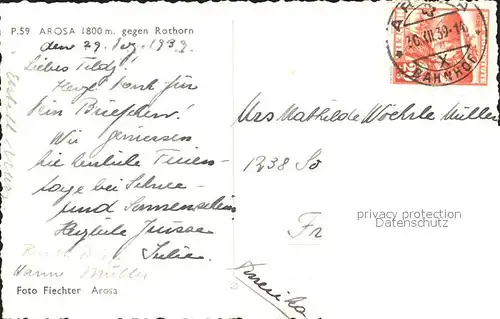 P.59 AROSA 1800 m. gegen Rothorn
den 29. Dez. 1939.
Liebes Tildy!
Herzl. Dank für
Dein Brieflein!
Wir geniessen
die herrliche Ferien-
tage bei Schnee
und Sonnenschein
Herzliche Grüsse
Julie
Hanni Müller
Foto Fiechter Arosa
30.XII.39-14
X
BAHNHOF
Mrs Mathilde Woehrle Müller
1238 So
Fr
Amerika
privacy protection
Datenschutz